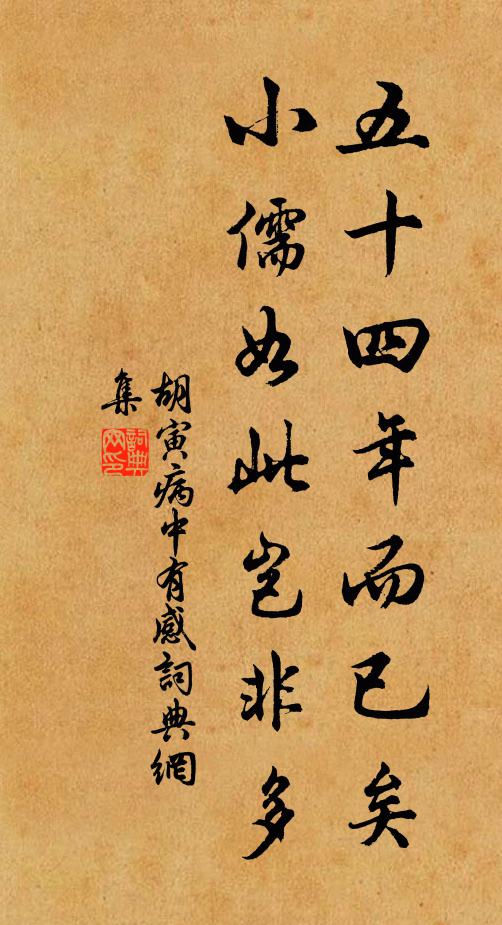 五十四年而已矣
小儒如此岂非多
胡寅病中有感詞典網
集
詞典网印